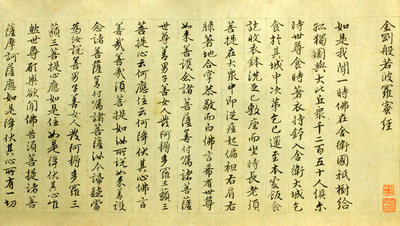 金剛般若波羅蜜經
如是我聞一時佛在舍衛國祇樹給
孤獨園與大比丘衆千二百五十人俱爾
時世尊食時著衣持鉢入舍衛大城乞
食於其城中次第乞已還至本處飯食
訖收衣鉢洗足已敷座而坐時長老須
菩提在大衆中即從座起偏袒右肩右
膝著地合掌恭敬而白佛言希有世尊
如来善護念諸菩薩善付囑諸菩薩
世尊善男子善女人發阿耨多羅三藐三
菩提心云何應住云何降伏其心佛言
善哉善哉須菩提如汝所說如来善護
念諸菩薩善付囑諸菩薩汝今諦聽當
為汝說善男子善女人發阿耨多羅三
藐三菩提心應如是住如是降伏其心唯
然世尊願樂欲聞佛告須菩提諸菩
薩摩訶薩應如是降伏其心所有一切